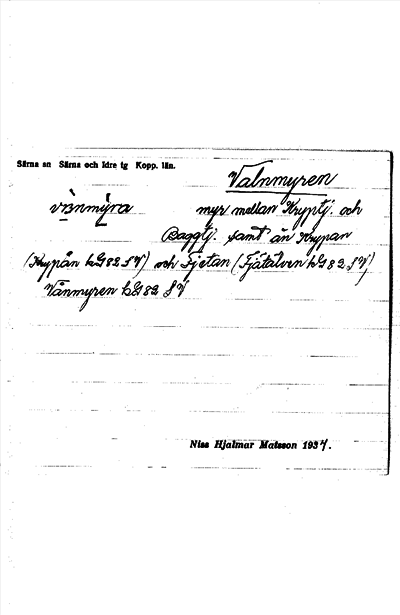 Särna sn Särna och Idre tg Kopp. län.
Valnmyren
vànmýra myr mellan Kryptj. och
Baggtj. samt ån Krypan
(Krypån kG82SV) och Fjetan (Fjätälven kG82SV)
Vånmyren kG82 SV
Niss Hjalmar Matsson 1934.